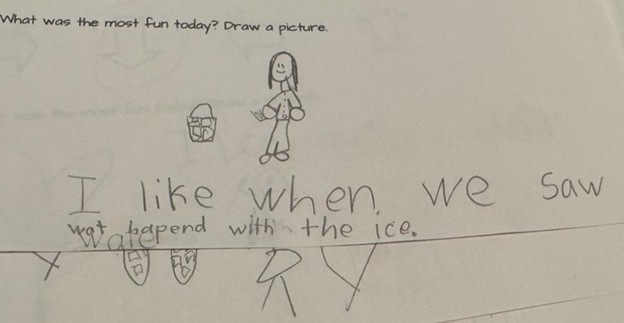 What was the most fun today? Draw a picture.
I like when we saw
wat hapend with the ice.